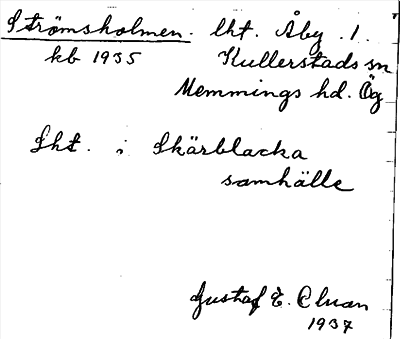 Strömsholmen. lht. Åby 1.
kb 1935 Kullerstads sn
Memmings hd. Ög
Lht. i Skärblacka
samhälle
Gustaf E.
1937